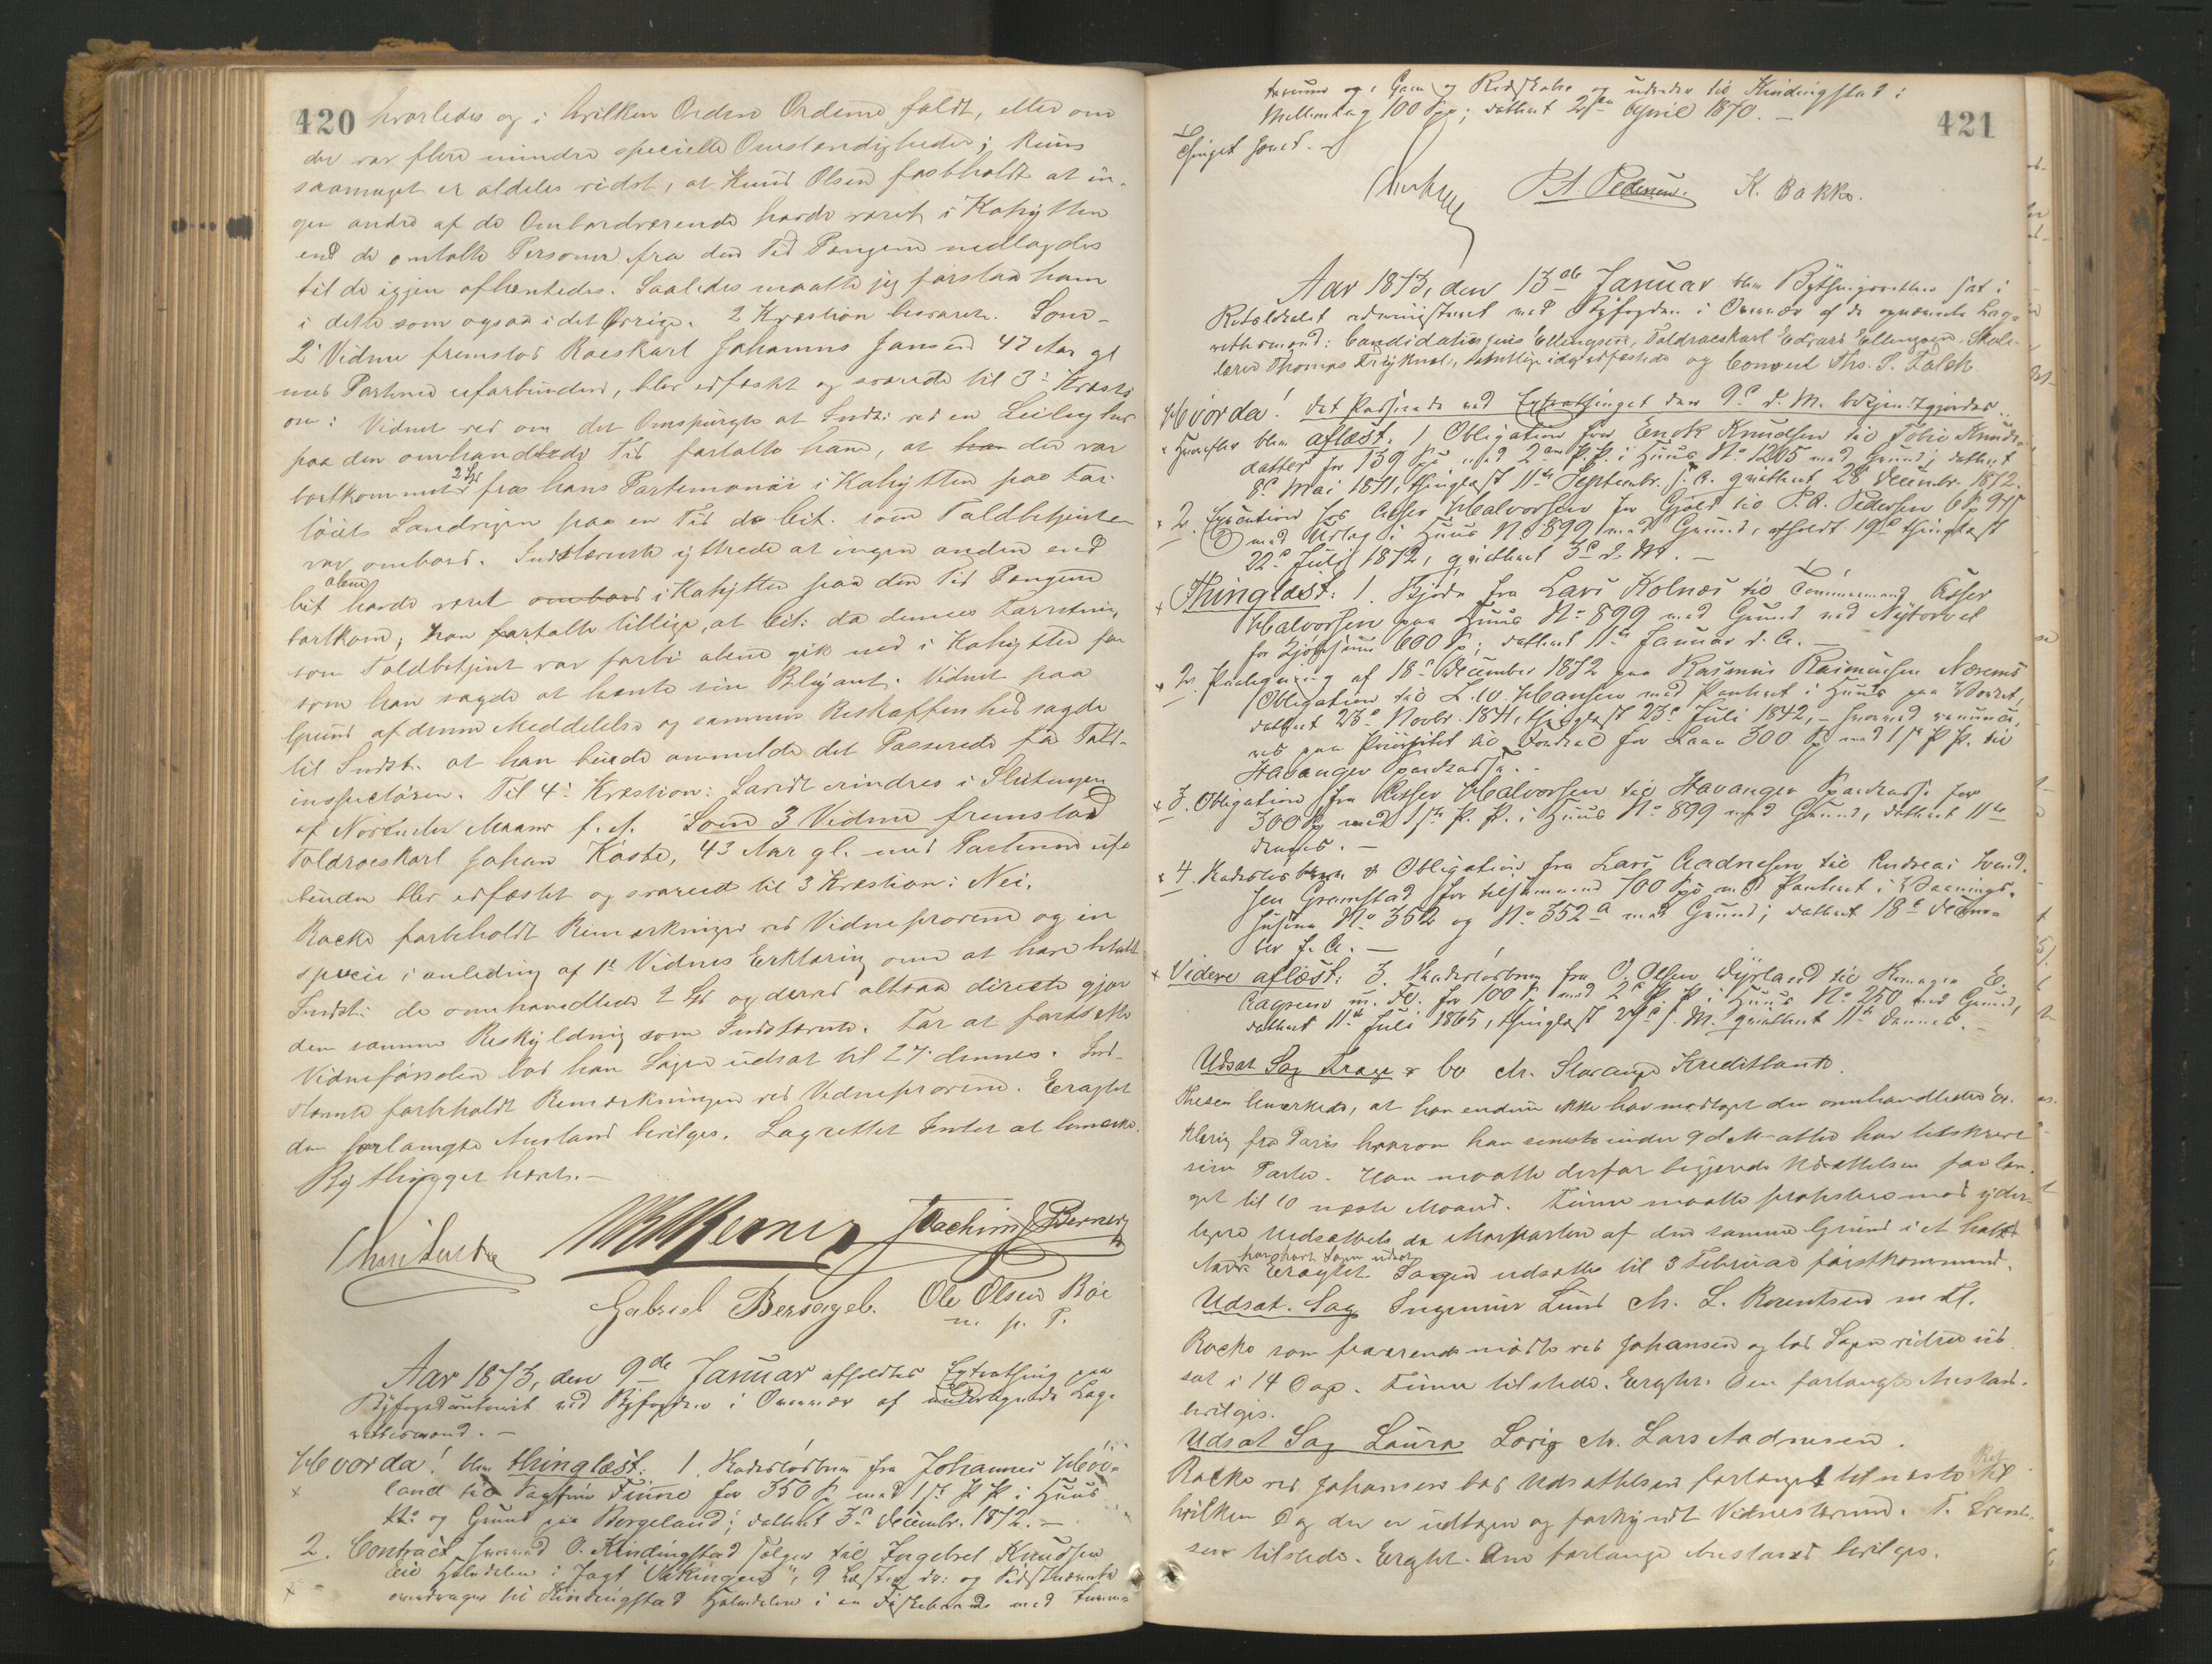 420
hvorledes og i hvilken Orden Ordene faldt, eller om
der var flere mindre specielle Omstændigheder; Kuns
saameget er aldeles vidst, at Knud Olsen fastholdt at in-
gen andre af de Ombordværende havde været i Kahytten
end de omtalte Personer fra den Tid Pengene nedlagdes
til de igjen afhentedes. Saaledes maatte jeg forstaa ham
i dette som ogsaa i det Øvrige. 2 Kvæstion besvaret. Som
2' Vidne fremstod Roeskarl Johannes Jansen 47 Aar gl
med Parterne uforbunden, blev edfæstet og svarede til 3' Kvæsti
on: Vidnet ved om det Omspurgte at Indst: ved en Leilighed
paa den omhandlede Tid fortalte ham, at han der var
bortkommet 2 Spd fra hans Portemonnai i Kahytten paa Far-
töiets Landreisen paa en Tid da Cit. som Toldbetjent
var ombord. Indstævnte yttrede at ingen anden end
Cit alene havde været ombord i Kahytten paa den Tid Pengene
bortkom; han fortalte tillige, at Cit: da dennes Forretning
som Toldbetjent var forbi alene gik ned i Kahytten for
som han sagde at hente sin Blyant. Vidnet paa
Grund af denne Meddelelse og sammes Beskaffenhed sagde
til Indst. at han burde anmelde det Passerede for Told-
inspectören. Til 4' Kvæstion: Lavidt erindres i Slutningen
af November Maaned f. A. Som 3 Vidne fremstod
Toldroeskarl Johan Koste, 43 Aar gl. med Parterne ufor
bunden blev edfæstet og svarede til 3 Kvæstion: Nei.
Racke forbeholdt Bemærkninger ved Vidneprovene og in
specie i anledning af 1' Vidnes Erklæring om at have betalt
Indst: de omhandlede 2 Spd og derved altsaa directe gjør
den samme Beskyldning som Indstævnte. For at fortsætte
Vidneførselen bad han Sagen udsat til 27' dennes. Ind-
stævnte forbeholdt Bemærkninger ved Vidneprovene. Eragtet
den forlangte Anstand bevilges. Lagrettet Intet at bemærke.
Bythinget hævet.—
Joachim Berner
Gabriel Bersagel. Ole Olsen Böe
m. p. P.
Aar 1873, den 9de Januar afholdtes Extrathing paa
Byfogedcontoret ved Byfogden i Overvær af undertegnede Lag-
rettesmænd.—
Hvorda! blev thinglæst: 1. Kadeslösbrev fra Johannes Hövi-
land til Fagfin Finne for 350 Sp med 1ste P. P. i Huus
No og Grund paa Bergeland; dateret 3die Decembr. 1872.—
2. Contract hvorved O. Kindingstad sælger til Ingebret Knudsen
Eie Halvdelen i Jagt "Vikingen", 9 Læster dr: og Sidstnævnte
overdrager til Kindingstad Halvdelen i en Fiskebaad med
421
og i Garn og Redskaber og udreder til Kindingstad i
Mellemlag 100 Spd; dateret 2den April 1870.—
Thinget hævet.—
P. A. Pedersen. K. Bakke.
Aar 1873, den 13de Januar blev Bythingsretten sat i
Retslocalet administreret ved Byfogden i Overvær af de opnævnte Lag-
rettesmænd: Candidatus juris Ellingsen, Toldroeskarl Edvard Ellingsen, Skole-
lærer Thomas Frøyknæs, samtlige idag edfæstede og Consul Ths. S. Falck
Hvorda! det Passerede ved Extrathinget den 9de d. M. bekjendtgjordes.
Hvorefter blev aflæst: 1 Obligation fra Enok Knudsen til Tobie Knuds-
datter for 139 Spd med 2den P. P. i Huus No 1205 med Grund; dateret
8de Mai 1871, thinglæst 11te Septembr. s. A. qvitteret 28de Decembr. 1872.
2. Execution hos Asser Halvorsen for Gjæld til P. A. Pedersen
med Udlæg i Huus No 899 med Grund, afholdt 19de thinglæst
22de Juli 1872, qvitteret 3die d. M.—
Thinglæst: 1. Skjøde fra Lars Kolnæs til Tömmermand Asser
Halvorsen paa Huus No 899 med Grund ved Nytorvet
for Kjöbesum 600 Sp; dateret 11te Januar d. A.—
2. Paategning af 18de December 1872 paa Rasmus Rasmussen Nærems
Obligation til L. W. Hansen med Panteret i Huus paa Verket,
dateret 23de Novbr. 1841, thinglæst 23de Juli 1842,— hvorved renunce-
res paa Prioritet til Fordeel for Laan 300 Sp med 1ste P. P. til
Stavanger Sparekasse.—
3. Obligation fra Asser Halvorsen til Stavanger Sparekasse for
300 Sp med 1ste P. P. i Huus No 899 med Grund, dateret 11te
dennes.—
4. Kadeslösbrev & Obligation fra Lars Aadnesen til Andreas Svend-
sen Gramstad for tilsammen 700 Spd med Panteret i Vaanings-
husene No 352 og No 352a med Grund; dateret 18de Decem-
ber f. A.—
Videre aflæst: 3. Skadeslösbrev fra O. Olsen Dyrland til Kemager E.
Aagesen m. Fl. for 100 Sp med 2den P. P. i Huus No 250 med Grund,
dateret 11te Juli 1865, thinglæst 24de s. M. qvitteret 11te dennes.—
Udsat Sag & Co Ctr. Stavanger Kreditbank.
Thesen bemærkede, at han endnu ikke har modtaget den omhandlede Er-
klæring fra Paris hvorom han senest under 9 d M atter har tilskrevet
sin Parter. Han maatte derfor begjære Udsættelsen forlæn-
get til 10 næste Maaned. Finne maatte protestere mod yder-
ligere Udsættelse da Modparten af den samme Grund i et halvt
Aar har havt Sagen udsat. Eragtet: Sagen udsættes til 3 Februar førstkommende.
Udsat. Sag Ingeniör Lund Ctr. L. Berentsen m Fl.
Racke som fraværende mødte ved Johansen og bad Sagen videre ud
sat i 14 Dage. Finne tilstede. Eragtet: Den forlangte Anstand
bevilges.
Udsat Sag Laura Lorig Ctr. Lars Aadnesen.
Racke ved Johansen bad Udsættelsen forlænget til næste Ret til
hvilken Dag der er udtagen og forkyndt Vidnestævne. T. Svend-
sen tilstede. Eragtet: Den forlangte Anstand bevilges.